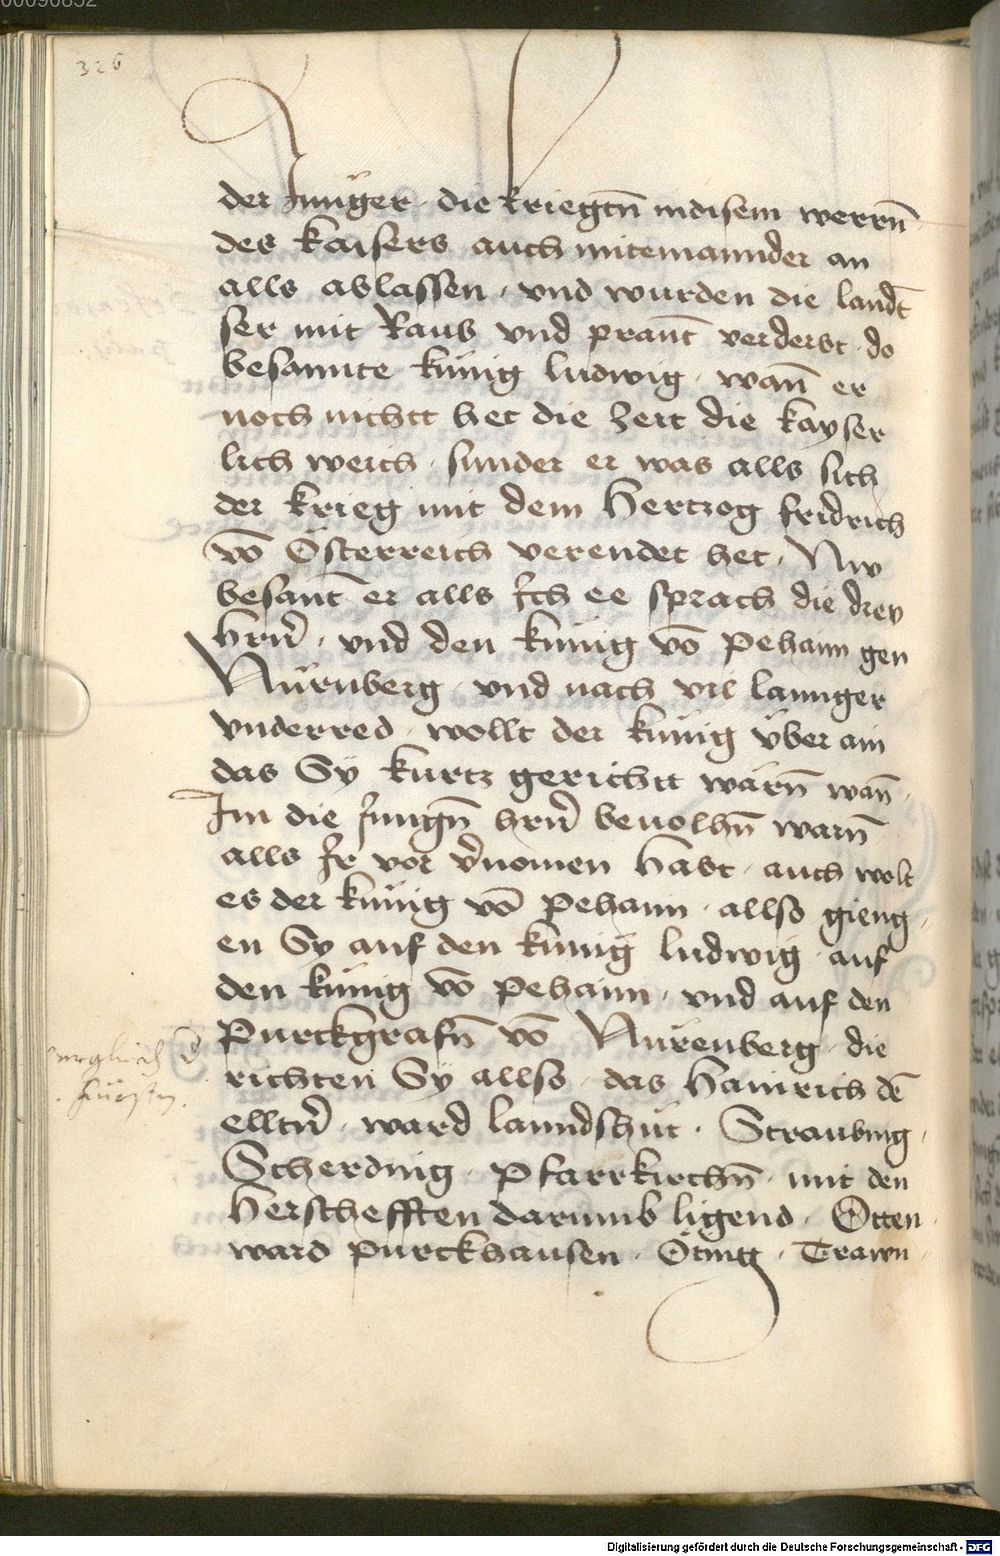 00090852
326
der Jünger · die kriegtn̄ indisem werrn̄
des kaisers auch miteinannder an
alls ablassen · vnd wurden die landt̄
ser mit Raub vnd prannt̄ verderbt · do
besannte künig ludwig · wann̄ er
noch nichtt het die zeit die kayser
lich weich · sunder er was alls sich
der krieg mit dem Hertzog fridrich
vō Österreich verendet het · Nw
besant̄ er alls Ich ee sprach die drey
hrn̄ · vnd den künig vō Pehaim gen
Nürnberg · vnd nach vil lannger
vnderred · wollt der künig über ain
das Sy kurtz gerichtt wärn̄ wan̄ ·
Im die Jungn̄ hrn̄ beuolhn̄ warn̄
alls Ir vor v̄nomen habt · auch wolt
es der künig vō Pehaim · allso gieng ·
en Sy auf den künig ludwig · auf
den künig vō Pehaim · vnd auf den
Purckgrafn̄ vō Nürenberg · die
verglich d
fürstn.
richten Sy allso · das Hainrich dē
elltn̄ · ward lanndshut · Straubing ·
Scherding · Pfarrkirchn̄ · mit den
Herschefften darumb ligend · Otten ·
ward Purckhausen · Öting · Trawn ·
Digitalisierung gefördert durch die Deutsche Forschungsgemeinschaft - DFG